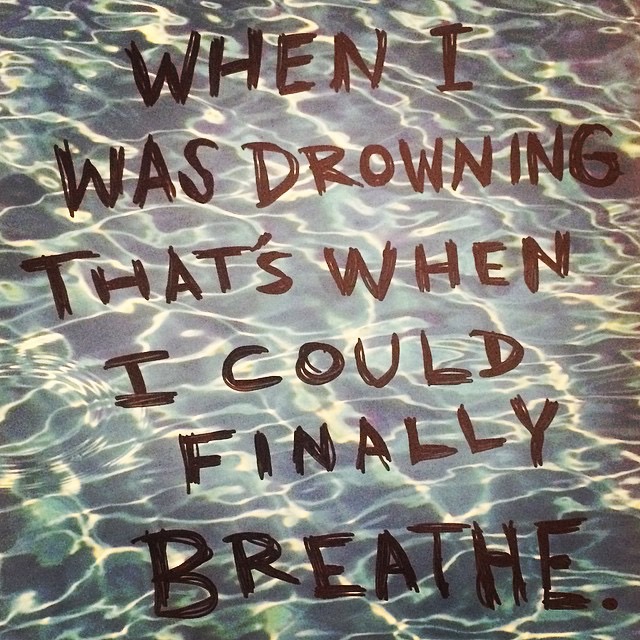 WHEN I
WAS DROWNING
THAT'S WHEN
I COULD
FINALLY
BREATHE.